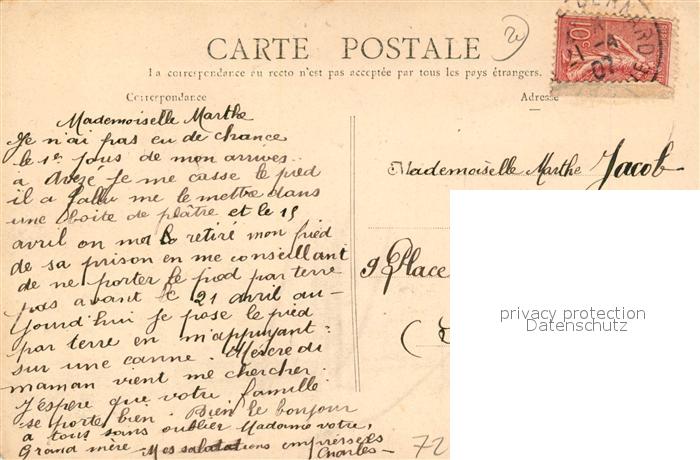 CARTE POSTALE
La correspondance au recto n'est pas acceptée par tous les pays étrangers.
Correspondance
Adresse
Mademoiselle Marthe
Je n'ai pas eu de chance
le 1er jour de mon arrivés
a Avèze je me casse le pied
il a fallu me le mettre dans
une boite de plâtre et le 15
avril on me l'a retiré mon pied
de sa prison en me conseillant
de ne porter le pied par terre
pas avant le 21 avril au-
jourd'hui je pose le pied
par terre en m'appuyant
sur une canne. Mercredi
maman vient me chercher.
J'espère que votre famille
se porte bien. Bien le bonjour
a tous sans oublier Madame votre
Grand mère. Mes salutations empressées
Charles
Mademoiselle Marthe Jacob
9 Place
72
privacy protection
Datenschutz